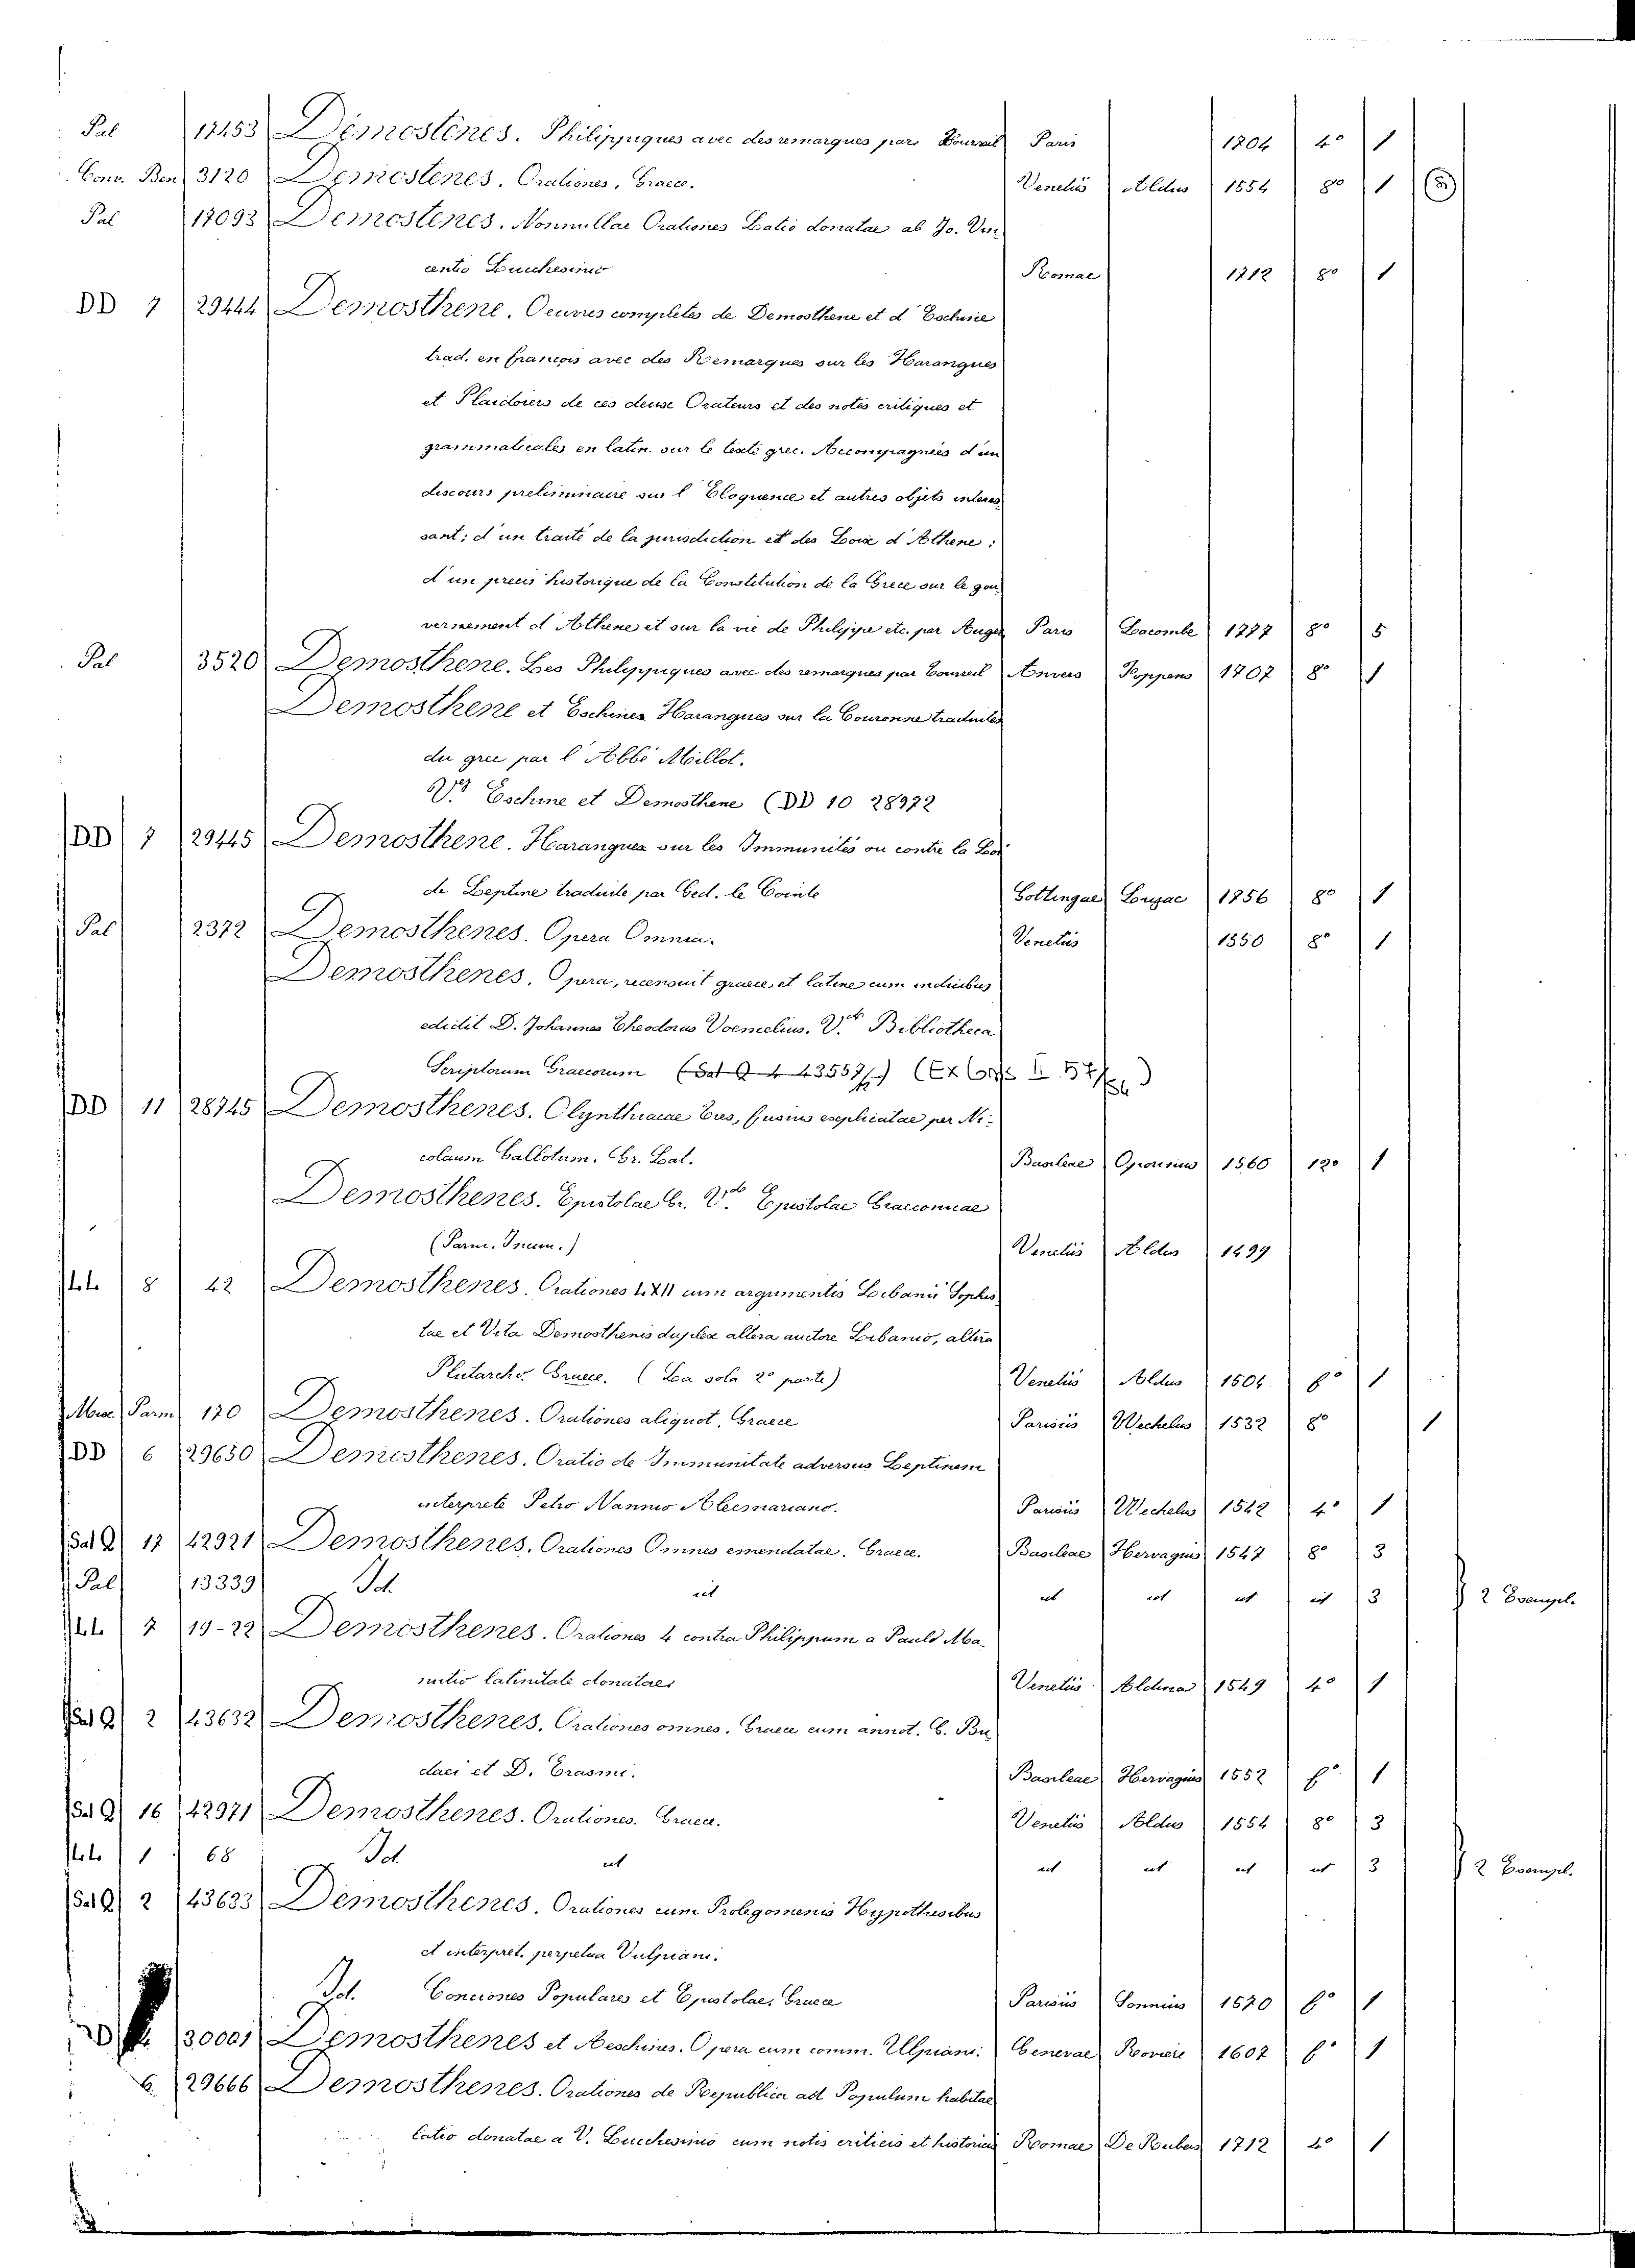 Pal 17453 Démosténes. Philippiques avec des remarques par Tourreil Paris 1704 4° 1
Conv. Ben 3120 Demostenes. Orationes, Graece. Venetiis Aldus 1554 8° 1
Pal 17093 Demostenes. Nonnullae Orationes Latio donatae ab Jo. Vin
centio Lucchesinio Romae 1712 8° 1
DD 7 29444 Demosthene. Oeuvres completes de Demosthene et d'Eschine
trad. en francois avec des Remarques sur les Harangues
et Plaidoiers de ces deux Orateurs et des notes critiques et
grammaticales en latin sur le texte grec. Accompagnées d'un
discours preliminaire sur l'Eloquence et autres objets interes
sant; d'un traité de la jurisdiction et des Loix d'Athene;
d'un precis historique de la Constitution de la Grece sur le gou
vernement d'Athene et sur la vie de Philippe etc. par Auger Paris Lacombe 1777 8° 5
Pal 3520 Demosthene. Les Philippiques avec des remarques par Tourreil Anvers Foppens 1707 8° 1
Demosthene et Eschines Harangues sur la Couronne traduites
du grec par l'Abbé Millot.
Eschine et Demosthene (DD 10 28972
DD 7 29445 Demosthene. Harangues sur les Immunités ou contre la Loi
de Leptine traduite par Ged. le Cointe Gottingae Luzac 1756 8° 1
Pal 2372 Demosthenes. Opera Omnia. Venetiis 1550 8° 1
Demosthenes. Opera, recensuit graece et latine cum indicibus
edidit D. Johannes Theodorus Voemelius. Bibliotheca
Scriptorum Graecorum
DD 11 28745 Demosthenes. Olynthiacae tres, fusius explicatae per Ni-
colaum Callotum. Gr. Lat. Basileae Oporinus 1560 12° 1
Demosthenes. Epistolae Gr. Epistolae Graeconicae
(Parm. Incun.) Venetiis Aldus 1499
LL 8 42 Demosthenes. Orationes LXII cum argumentis Libanii Sophis
tae et Vita Demosthenis duplex altera auctore Libanio, altera
Plutarcho. Graece. (La sola 2° parte) Venetiis Aldus 1504 f° 1
Misc. Parm 170 Demosthenes. Orationes aliquot, Graece Parisiis Wechelus 1532 8° 1
DD 6 29650 Demosthenes. Oratio de Immunitate adversus Leptinem
interprete Petro Nannio Alecmariano. Parisiis Wechelus 1542 4° 1
Sal Q 17 42921 Demosthenes. Orationes Omnes emendatae. Graece. Basileae Hervagius 1547 8° 3
Pal 13339 Id. ut ut ut ut ut 3 2 Exempl.
LL 7 19-22 Demosthenes. Orationes 4 contra Philippum a Paulo Ma-
nutio latinitate donatae Venetiis Aldina 1549 4° 1
Sal Q 2 43632 Demosthenes. Orationes omnes. Graece cum annot. G. Bu
daei et D. Erasmi. Basileae Hervagius 1552 f° 1
Sal Q 16 42971 Demosthenes. Orationes. Graece. Venetiis Aldus 1554 8° 3
LL 1 68 Id. ut ut ut ut ut 3 2 Exempl.
Sal Q 2 43633 Demosthenes. Orationes cum Prolegomenis Hypothesibus
et interpret. perpetua Vulpiani.
Id. Conciones Populares et Epistolae, Graece Parisiis Sonnius 1570 f° 1
30001 Demosthenes et Aeschines. Opera cum comm. Ulpiani. Genevae 1607 f° 1
6. 29666 Demosthenes. Orationes de Republica ad Populum habitae
latio donatae a V. Lucchesinio cum notis criticis et historicis Romae De Rubeis 1712 4° 1